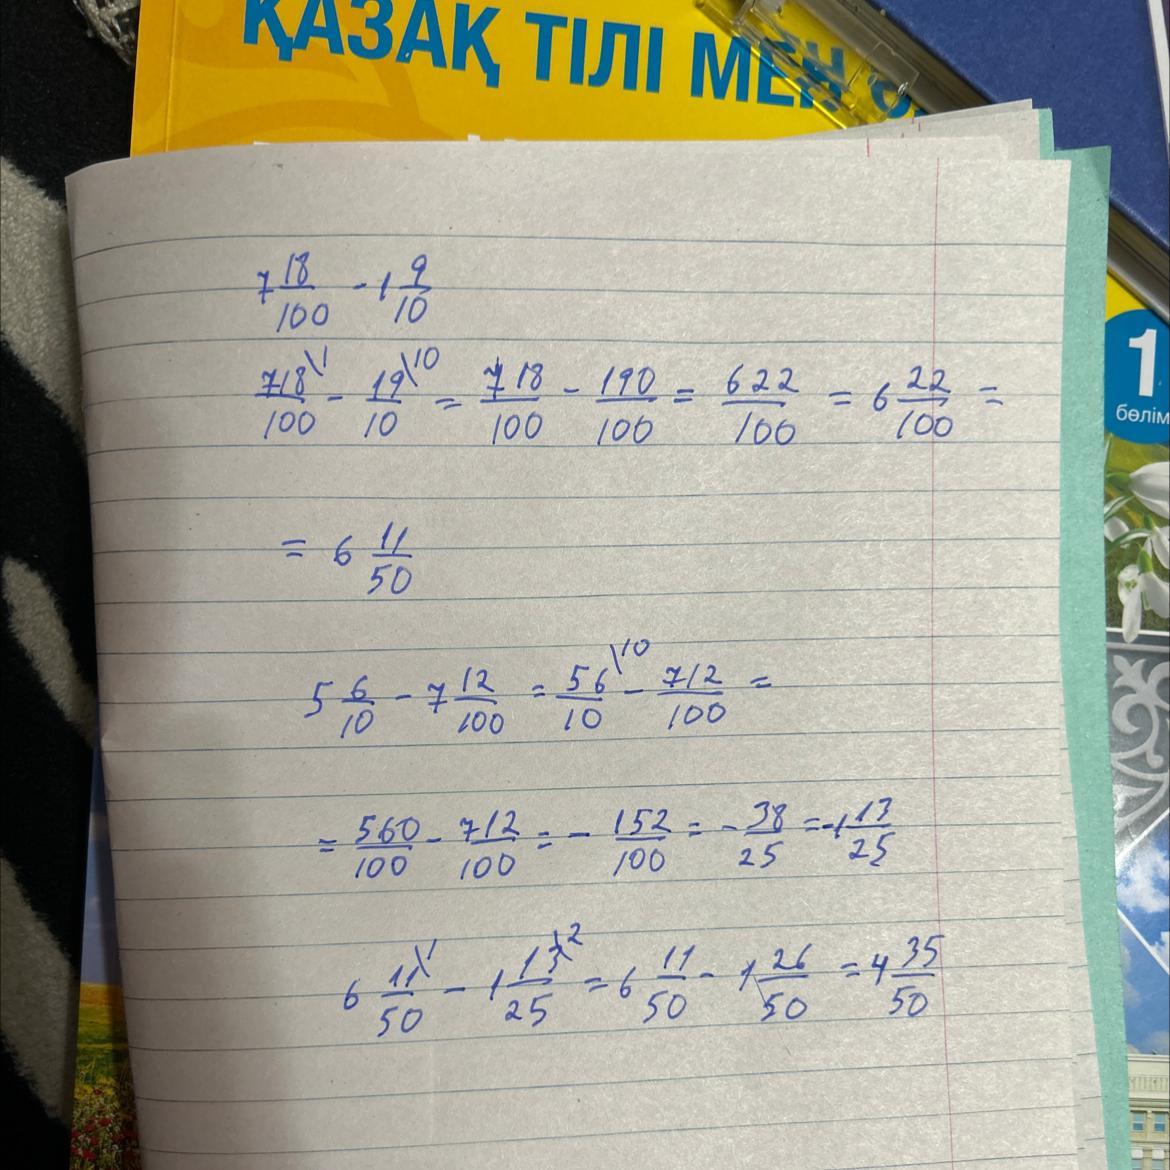 ҚАЗАҚ ТІЛІ МЕН
1
бөлім
7 18/100 - 1 9/10
718\1/100 - 19\10/10 = 718/100 - 190/100 = 622/100 = 6 22/100 =
= 6 11/50
5 6/10 - 7 12/100 = 56\10/10 - 712/100 =
= 560/100 - 712/100 = - 152/100 = - 38/25 = -1 13/25
6 11\1/50 - 1 13\2/25 = 6 11/50 - 1 26/50 = 4 35/50